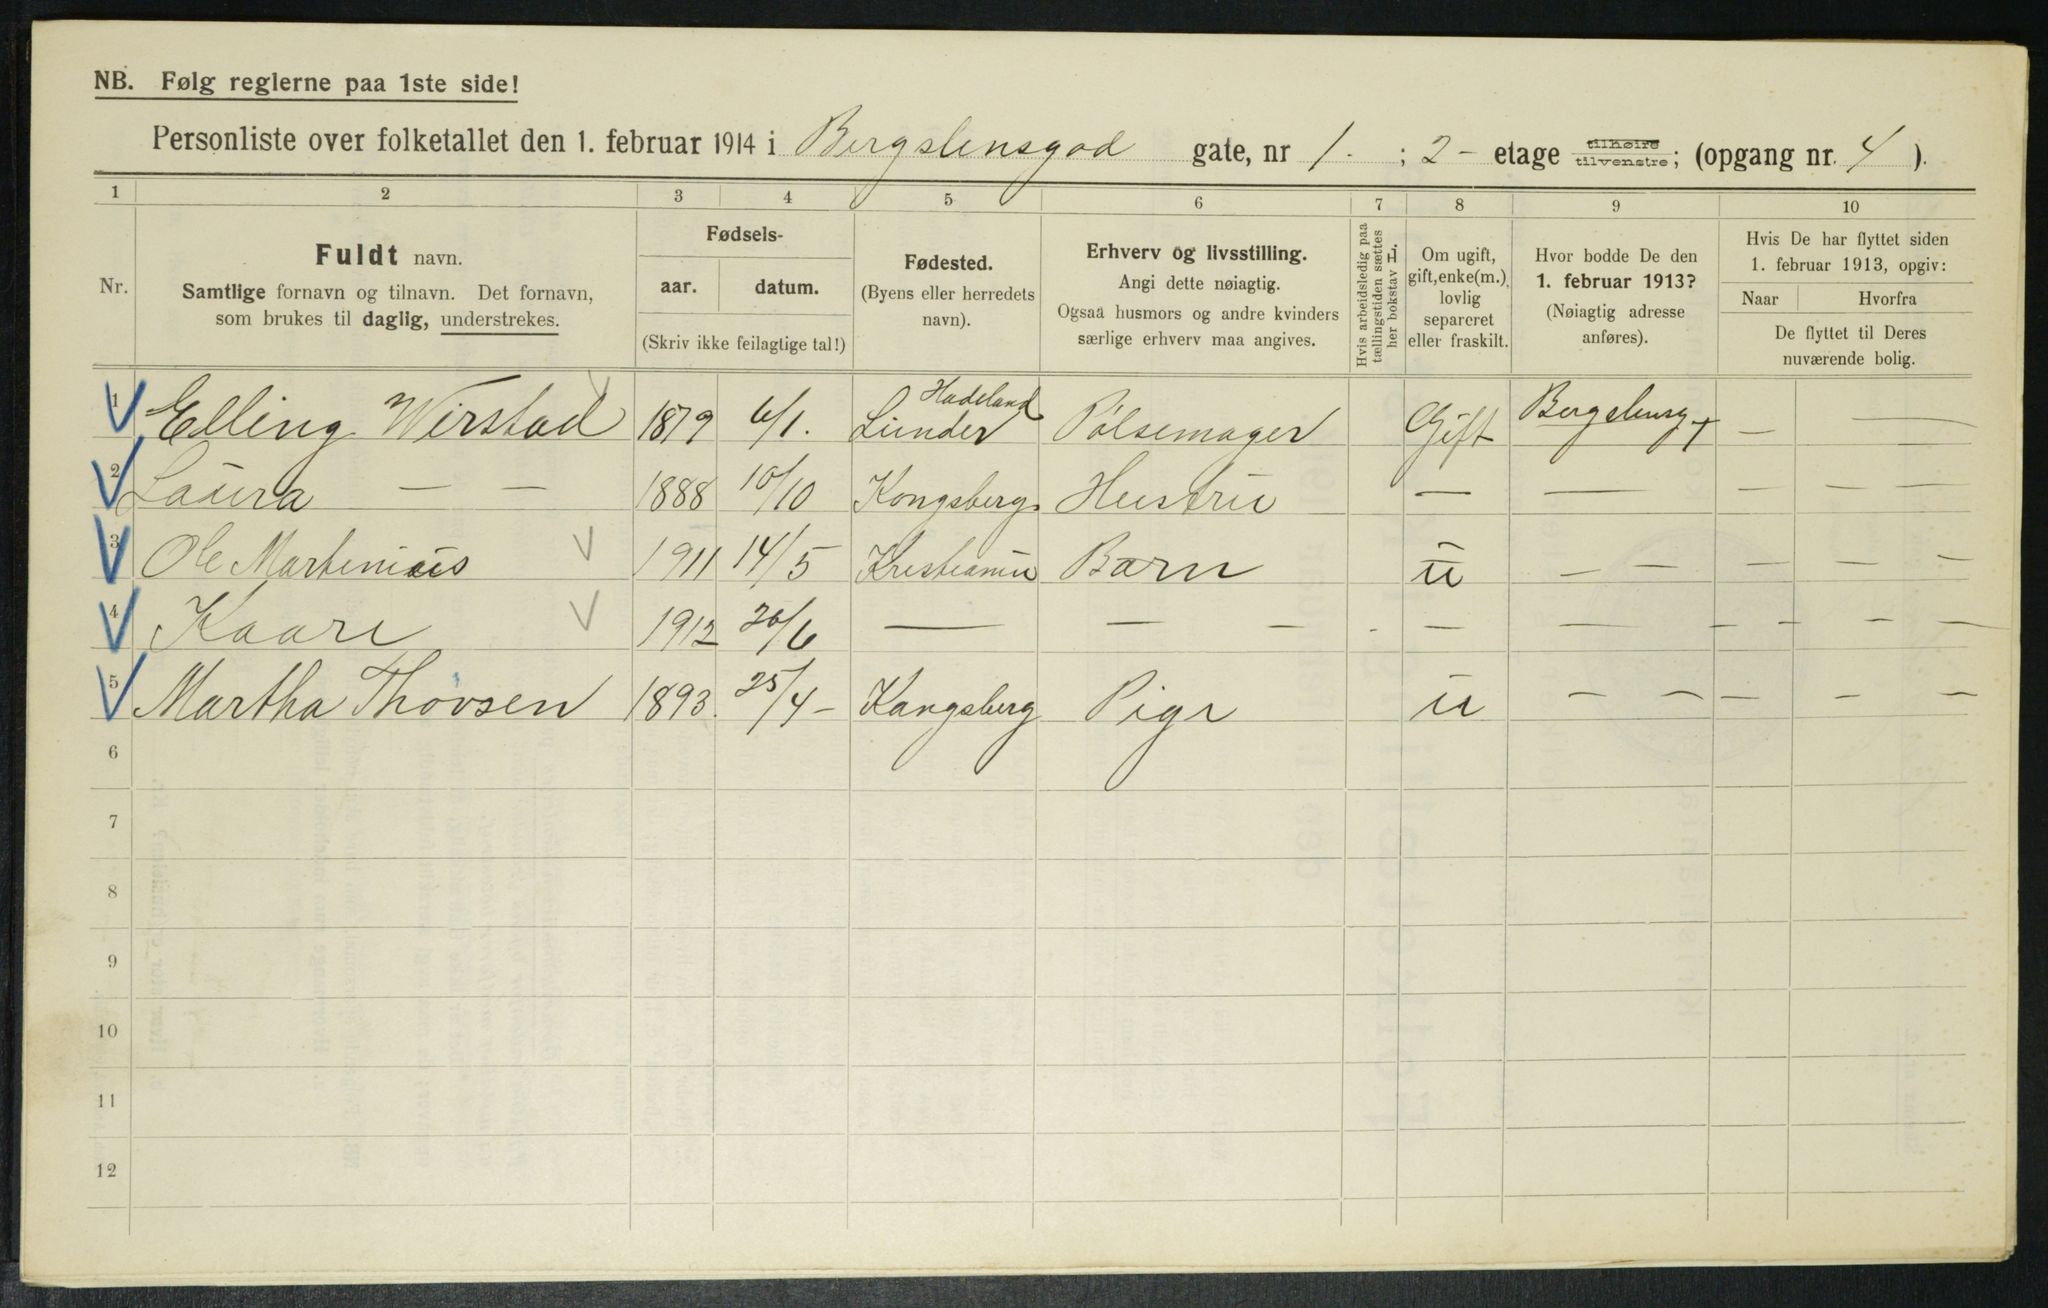 NB. Følg reglerne paa 1ste side!
Personliste over folketallet den 1. februar 1914 i Bergslensgad gate, nr 1. ; 2 - etage tilhøire tilvenstre; (opgang nr. 4 ).
1 2 3 4 5 6 7 8 9 10
Nr.
Fuldt navn.
Samtlige fornavn og tilnavn. Det fornavn,
som brukes til daglig, understrekes.
Fødsels-
aar. datum.
(Skriv ikke feilagtige tal!)
Fødested.
(Byens eller herredets
navn).
Erhverv og livsstilling.
Angi dette nøiagtig.
Ogsaa husmors og andre kvinders
særlige erhverv maa angives.
Hvis arbeidsledig paa
tællingstiden sættes
her bokstav L.
Om ugift,
gift, enke(m.),
lovlig
separeret
eller fraskilt.
Hvor bodde De den
1. februar 1913?
(Nøiagtig adresse
anføres).
Hvis De har flyttet siden
1. februar 1913, opgiv:
Naar Hvorfra
De flyttet til Deres
nuværende bolig.
1 Elling Wirstad 1879 6/1. Hadeland Lunder Pölsemager Gift Bergslensg —  —
2 Laura — — 1888 10/10 Kongsberg. Hustru — — — — — —
3 Ole Martenius 1911 14/5 Kristiania Barn ū — — — — —
4 Kaare 1912 26/6 — — — - — — — — — —
5 Martha Thovsen 1893. 25/4 - Kongsberg Pige ū — — — — — —
6
7
8
9
10
11
12